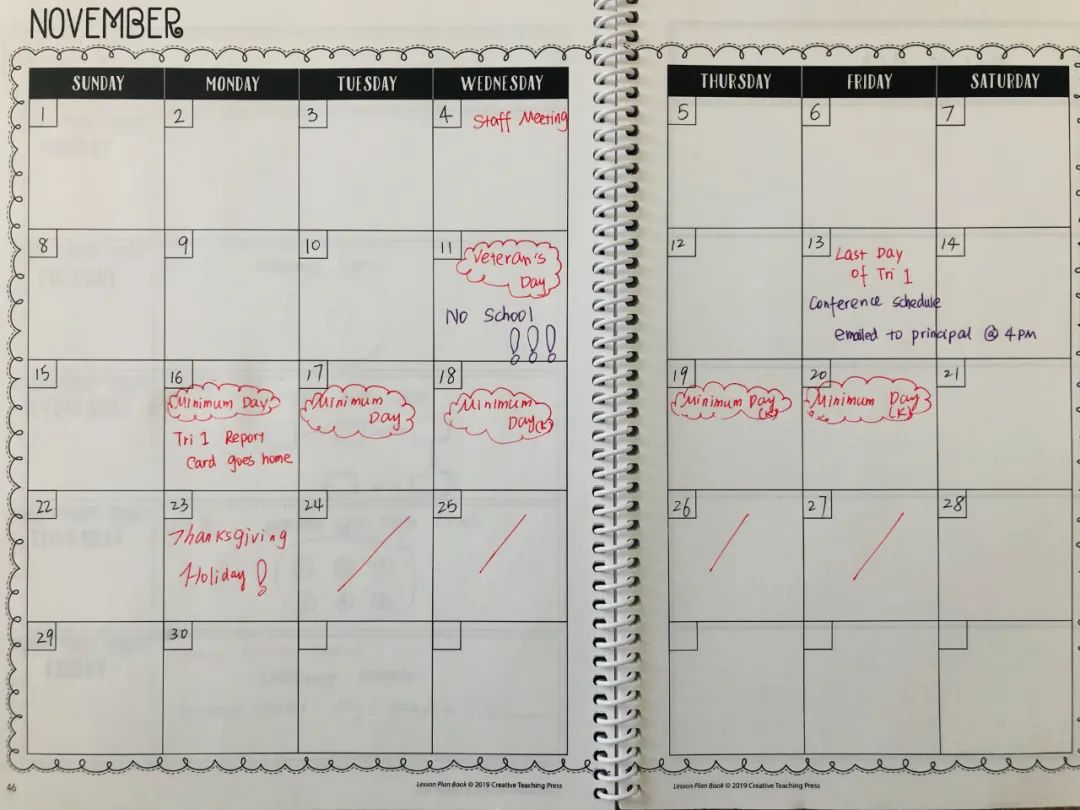 NOVEMBER
SUNDAY MONDAY TUESDAY WEDNESDAY THURSDAY FRIDAY SATURDAY
1 2 3 4 Staff Meeting 5 6 7
8 9 10 11 12 13 14
Veteran's
Day
No School
!!!
Last Day
of Tri 1
Conference schedule
emailed to principal @ 4PM
15 16 17 18 19 20 21
Minimum Day
Tri 1 Report
Card goes home
Minimum
Day
Minimum
Day(K)
Minimum Day
(K)
Minimum Day
(K)
22 23 24 25 26 27 28
Thanksgiving
Holiday!
29 30
46
Lesson Plan Book © 2019 Creative Teaching Press
Lesson Plan Book © 2019 Creative Teaching Press